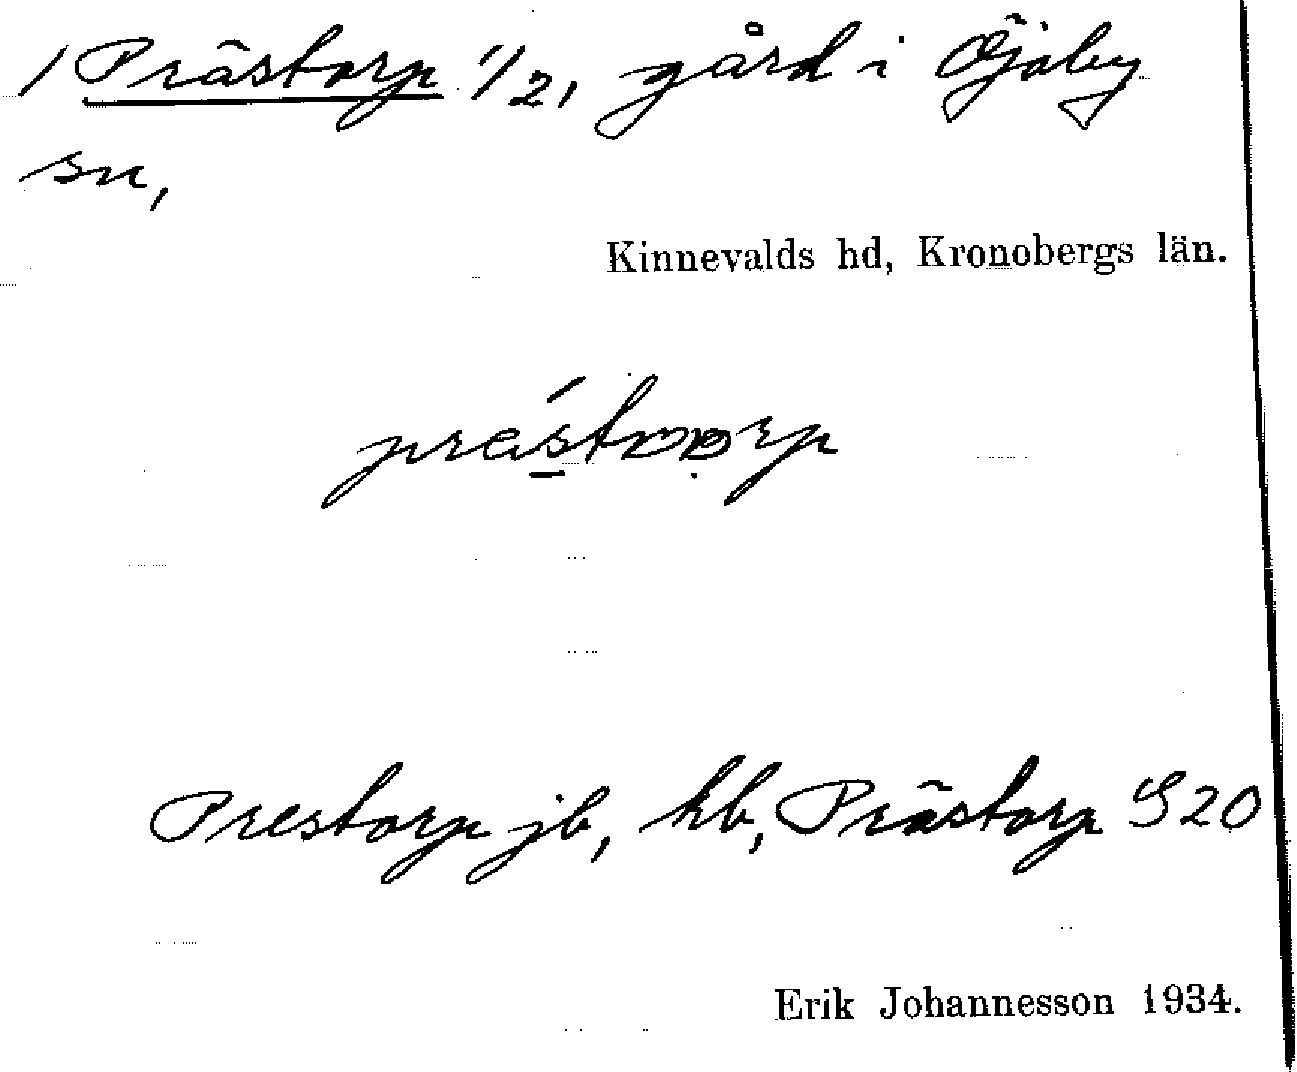 / Prästorp 1/2, gård i Öjaby
sn,
Kinnevalds hd, Kronobergs län.
Prestorp jb, hb, Prästorp S20
Erik Johannesson 1934.